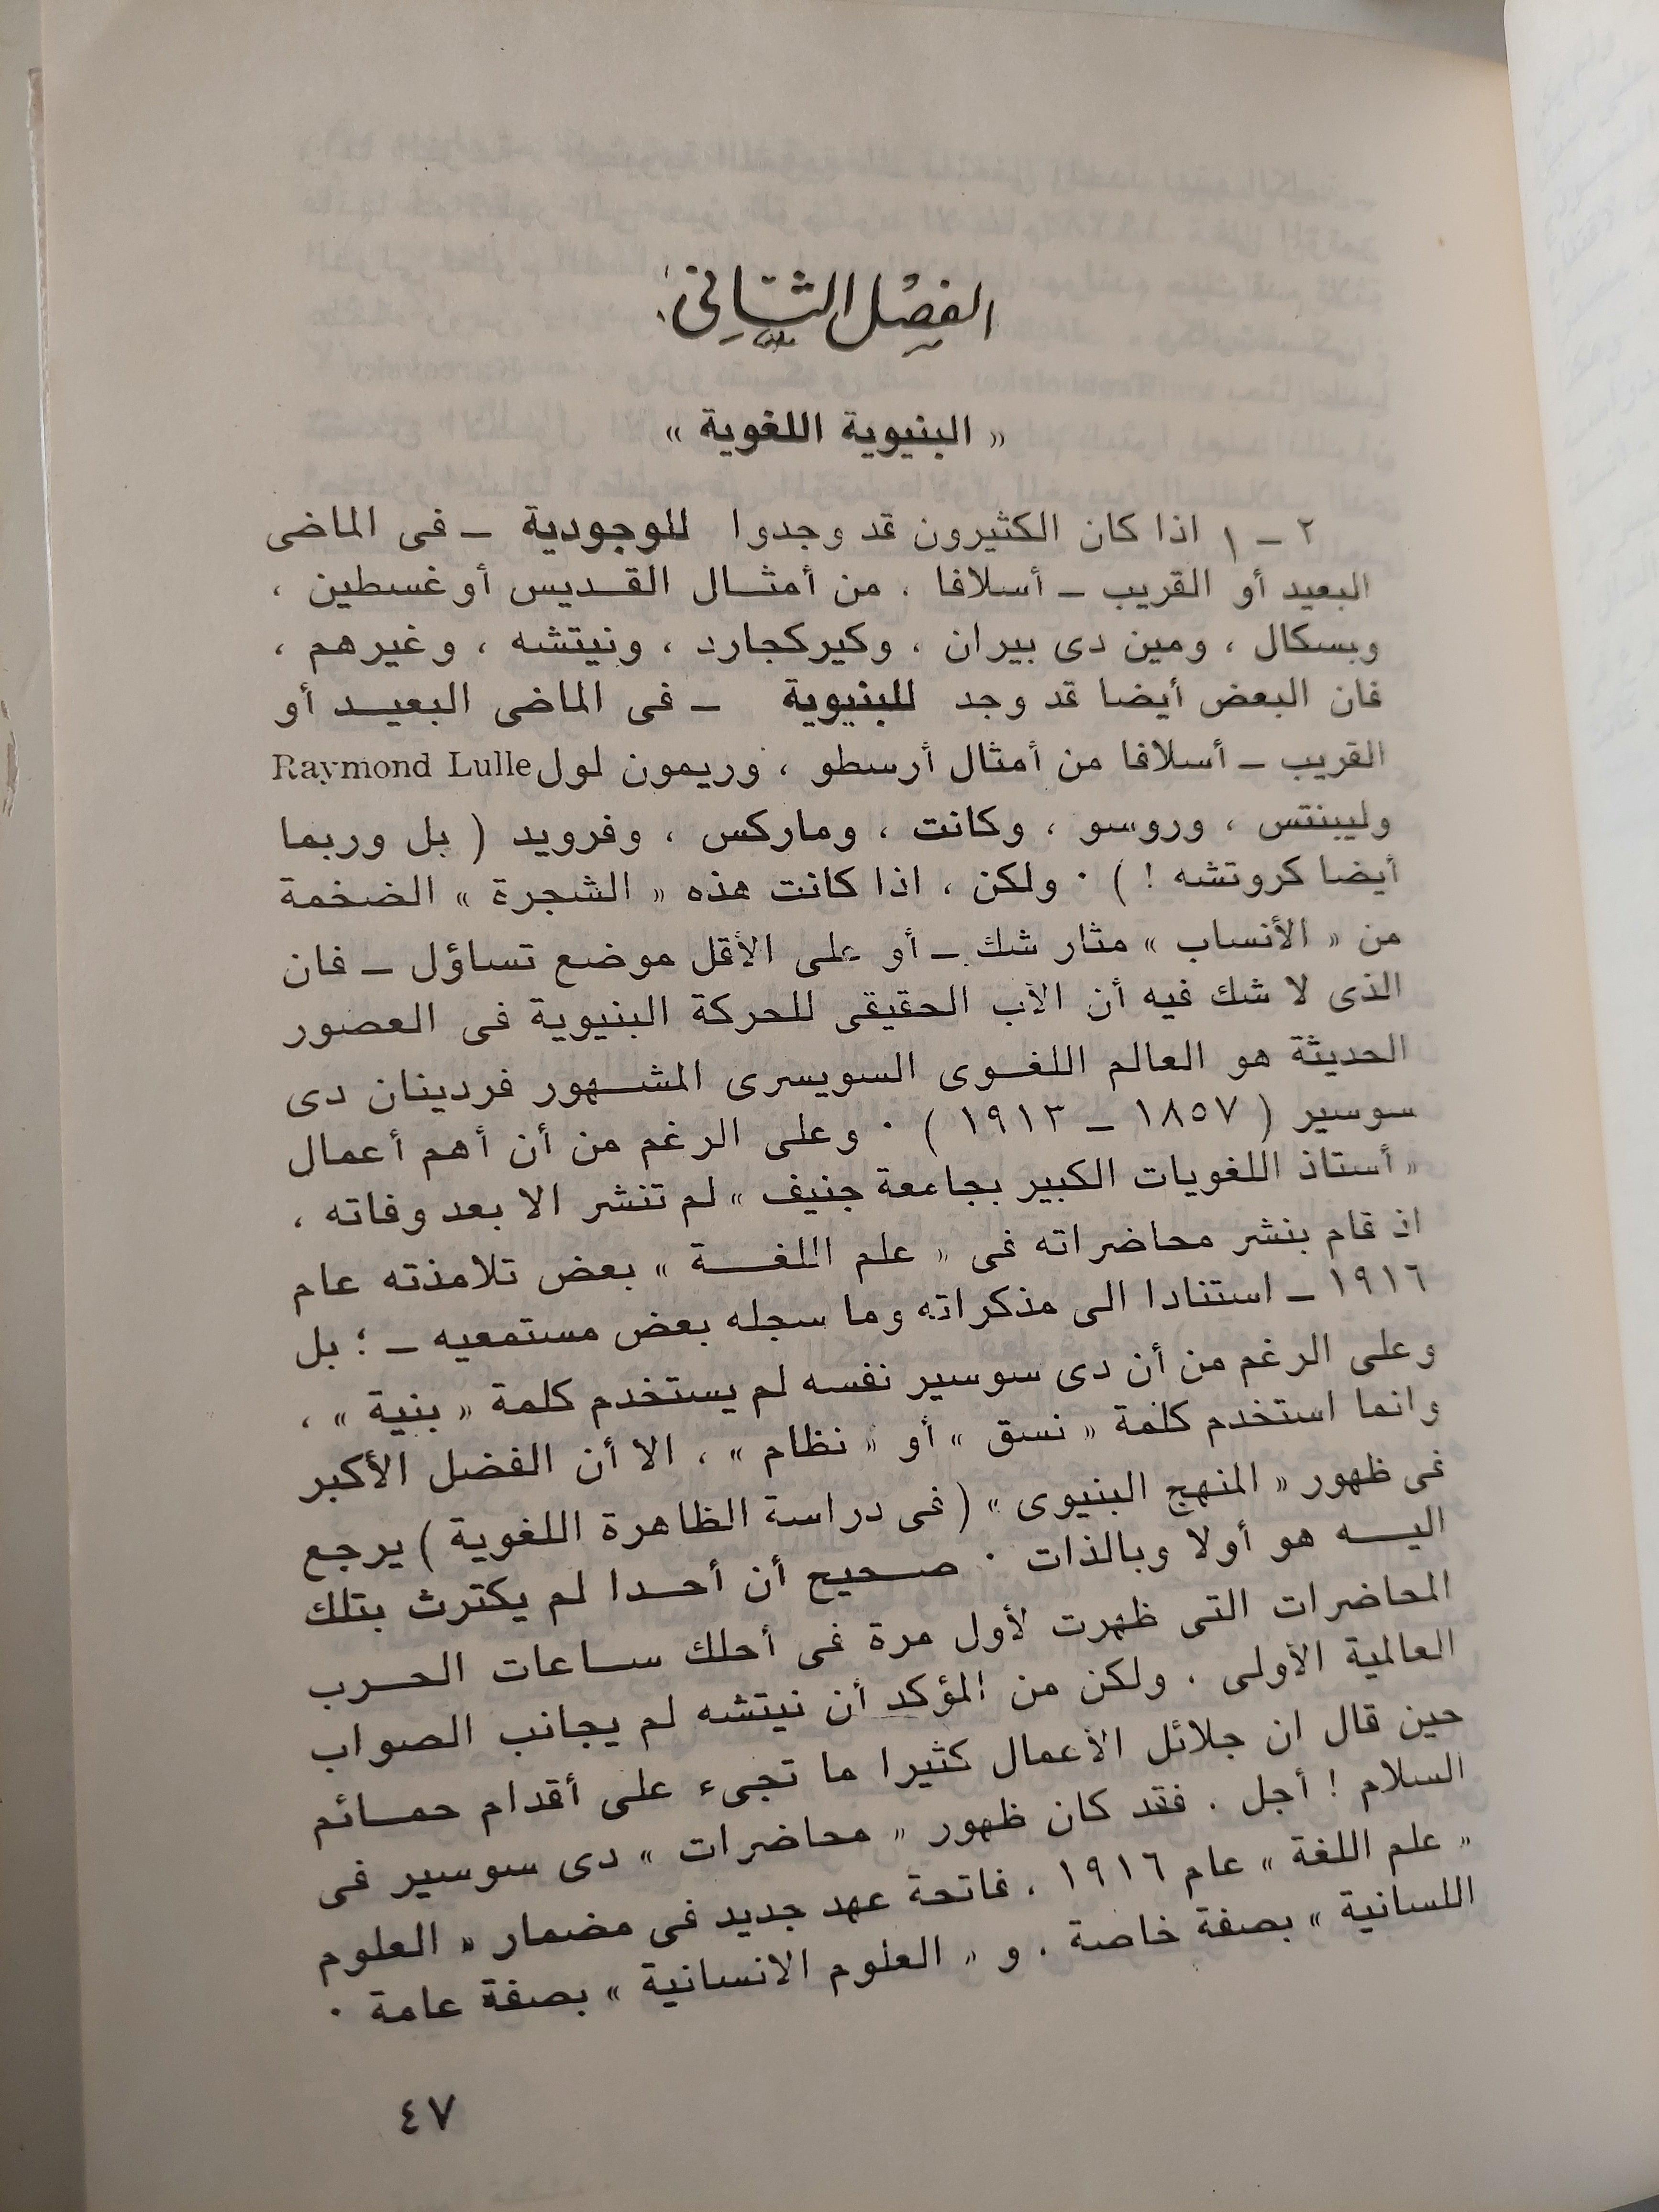 الفصل الثاني
« البنيوية اللغوية »
٢ ـ ١ اذا كان الكثيرون قد وجدوا للوجودية ـ فى الماضى
البعيد أو القريب ـ أسلافا ، من أمثال القديس أوغسطين ،
وبسكال ، ومين دى بيران ، وكيركجارد ، ونيتشه ، وغيرهم ،
فان البعض أيضا قد وجد للبنيوية ـ فى الماضى البعيد أو
القريب ـ أسلافا من أمثال أرسطو ، وريمون لول Raymond Lulle
وليبنتس ، وروسو ، وكانت ، وماركس ، وفرويد ( بل وربما
أيضا كروتشه ! ) . ولكن ، اذا كانت هذه « الشجرة » الضخمة
من « الأنساب » مثار شك ـ أو على الأقل موضع تساؤل ـ فان
الذى لا شك فيه أن الأب الحقيقى للحركة البنيوية فى العصور
الحديثة هو العالم اللغوى السويسرى المشهور فردينان دى
سوسير ( ١٨٥٧ ـ ١٩١٣ ) . وعلى الرغم من أن أهم أعمال
« أستاذ اللغويات الكبير بجامعة جنيف » لم تنشر الا بعد وفاته ،
اذ قام بنشر محاضراته فى « علم اللغة » بعض تلامذته عام
١٩١٦ ـ استنادا الى مذكراته وما سجله بعض مستمعيه ـ ؛ بل
وعلى الرغم من أن دى سوسير نفسه لم يستخدم كلمة « بنية » ،
وانما استخدم كلمة « نسق » أو « نظام » ، الا أن الفضل الأكبر
فى ظهور « المنهج البنيوى » ( فى دراسة الظاهرة اللغوية ) يرجع
اليه هو أولا وبالذات . صحيح أن أحدا لم يكترث بتلك
المحاضرات التى ظهرت لأول مرة فى أحلك ساعات الحرب
العالمية الأولى ، ولكن من المؤكد أن نيتشه لم يجانب الصواب
حين قال ان جلائل الأعمال كثيرا ما تجىء على أقدام حمائم
السلام ! أجل ، فقد كان ظهور « محاضرات » دى سوسير فى
« علم اللغة » عام ١٩١٦ ، فاتحة عهد جديد فى مضمار « العلوم
اللسانية » بصفة خاصة ، و « العلوم الانسانية » بصفة عامة .
٤٧